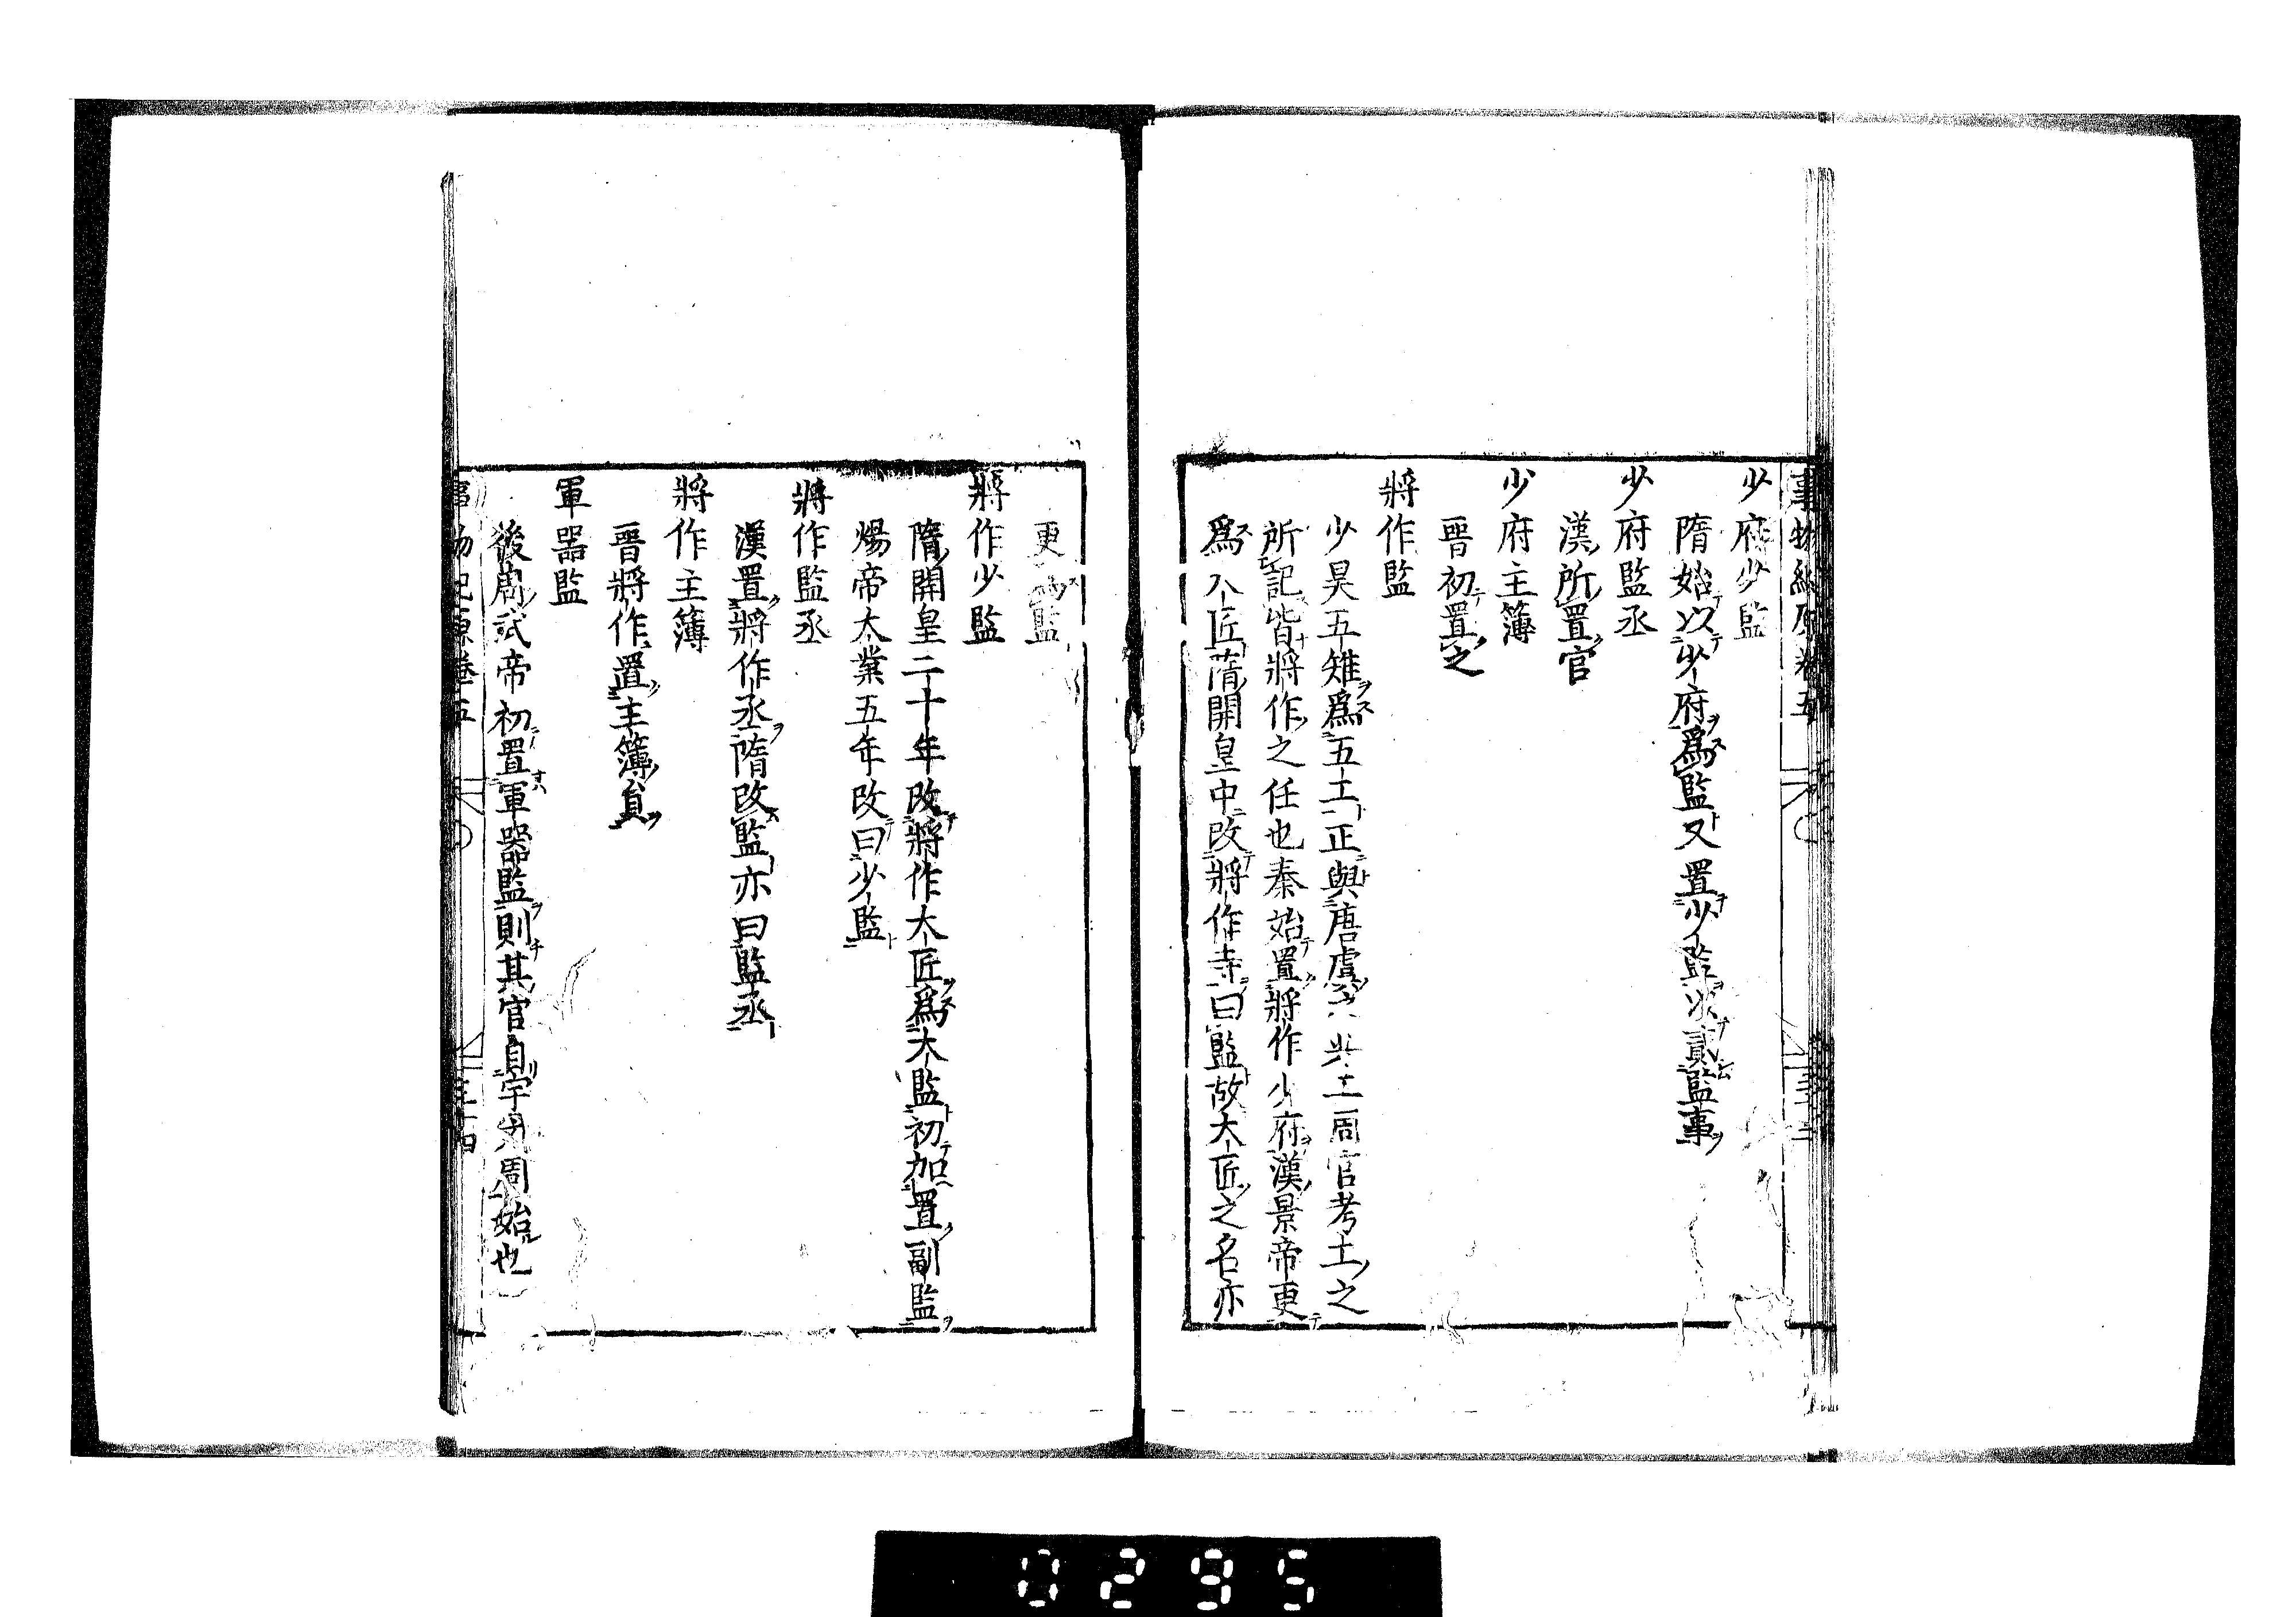 少府少監
隋始以少府爲監又置少監以貳監事
少府監丞
漢所置官
少府主簿
晋初置之
將作監
少昊五雉爲五工正與唐虞共工周官考工之
所記皆將作之任也秦始置將作少府漢景帝更
爲大匠隋開皇中改將作寺曰監故大匠之名亦
更爲監
將作少監
隋開皇二十年改將作大匠爲大監初加置副監
煬帝大業五年改曰少監
將作監丞
漢置將作丞隋改監亦曰監丞
將作主簿
晋將作置主簿員
軍器監
後周武帝初置軍器監則其官自宇文周始也
0295